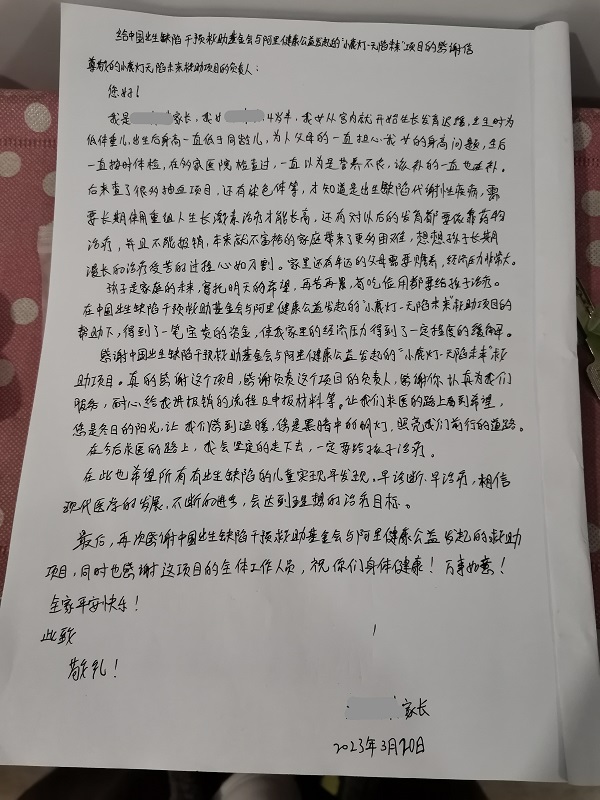 给中国出生缺陷干预救助基金会与阿里健康公益发起的“小鹿灯-无陷未来”项目的感谢信
尊敬的小鹿灯无陷未来救助项目的负责人：
您好！
我是家长，我女4岁半，我女从宫内就开始生长发育迟缓，出生时为
低体重儿，出生后身高一直低于同龄儿，为人父母的一直担心我女的身高问题，生后
一直按时体检，在多家医院检查过，一直以为是营养不良，该补的一直也在补。
后来查了很多抽血项目，还有染色体等，才知道是出生缺陷代谢性疾病，需
要长期使用重组人生长激素治疗才能长高，还有对以后的发育都要依靠药物
治疗，并且不能报销，本来就不富裕的家庭带来了更多困难，想想孩子长期
漫长的治疗受苦的过程心如刀割。家里还有年迈的父母需要赡养，经济压力非常大。
孩子是家庭的未来，寄托明天的希望，再苦再累，省吃俭用都要给孩子治疗。
在中国出生缺陷干预救助基金会与阿里健康公益发起的“小鹿灯-无陷未来”救助项目的
帮助下，得到了一笔宝贵的资金，使我家里的经济压力得到了一定程度的缓解。
感谢中国出生缺陷干预救助基金会与阿里健康公益发起的“小鹿灯-无陷未来”救
助项目。真的感谢这个项目，感谢负责这个项目的负责人，感谢你认真为我们
服务，耐心给我讲报销的流程及申报材料等。让我们求医的路上看到希望，
您是冬日的阳光，让我们感到温暖，您是黑暗中的明灯，照亮我们前行的道路。
在今后求医的路上，我会坚定的走下去，一定要给孩子治疗。
在此也希望所有有出生缺陷的儿童实现早发现、早诊断、早治疗，相信
现代医学的发展，不断的进步，会达到理想的治疗目标。
最后，再次感谢中国出生缺陷干预救助基金会与阿里健康公益发起的救助
项目，同时也感谢这项目的全体工作人员，祝你们身体健康！万事如意！
全家平安快乐！
此致
敬礼！
家长
2023年3月20日